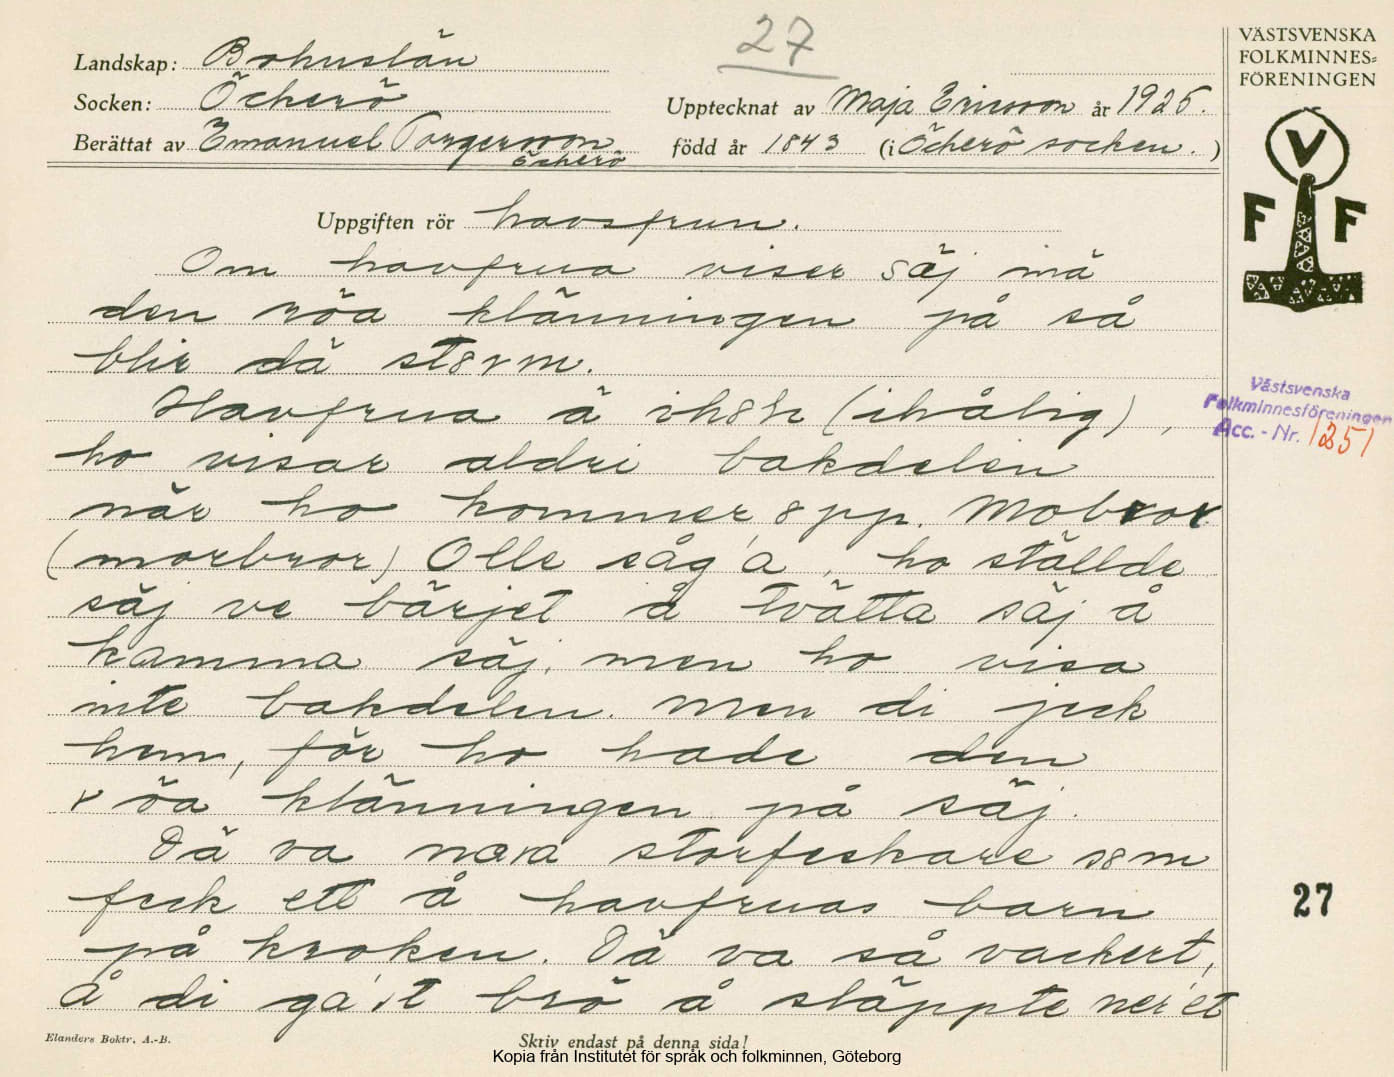 27
VÄSTSVENSKA
FOLKMINNES=
FÖRENINGEN
Landskap: Bohuslän
Socken: Öckerö
Upptecknat av Maja Ericsson år 1925.
Berättat av Emanuel Torgersson
Öckerö
född år 1843 (i Öckerö socken.)
V
F F
Uppgiften rör havsfrun.
Om havfrua viser säj mä
den röa klänningen på så
blir dä st8rm.
Havfrua ä ih8h (ihålig),
ho visar aldri bakdelen
när ho kommer 8pp. Mobror
(morbror) Olle såg'a, ho ställde
säj ve bärjet å tvätta säj å
kamma säj, men ho visa
inte bakdelen. Men di jeck
hem, för ho hade den
röa klänningen på säj.
Dä va nora storfeskare s8m
feck ett å havfruas barn
på kroken. Dä va så vackert,
å di ga'it brö å släppte ner'et
Västsvenska
Folkminnesföreningen
Acc. - Nr. 1251
27
Elanders Boktr. A.-B.
Skriv endast på denna sida!
Kopia från Institutet för språk och folkminnen, Göteborg